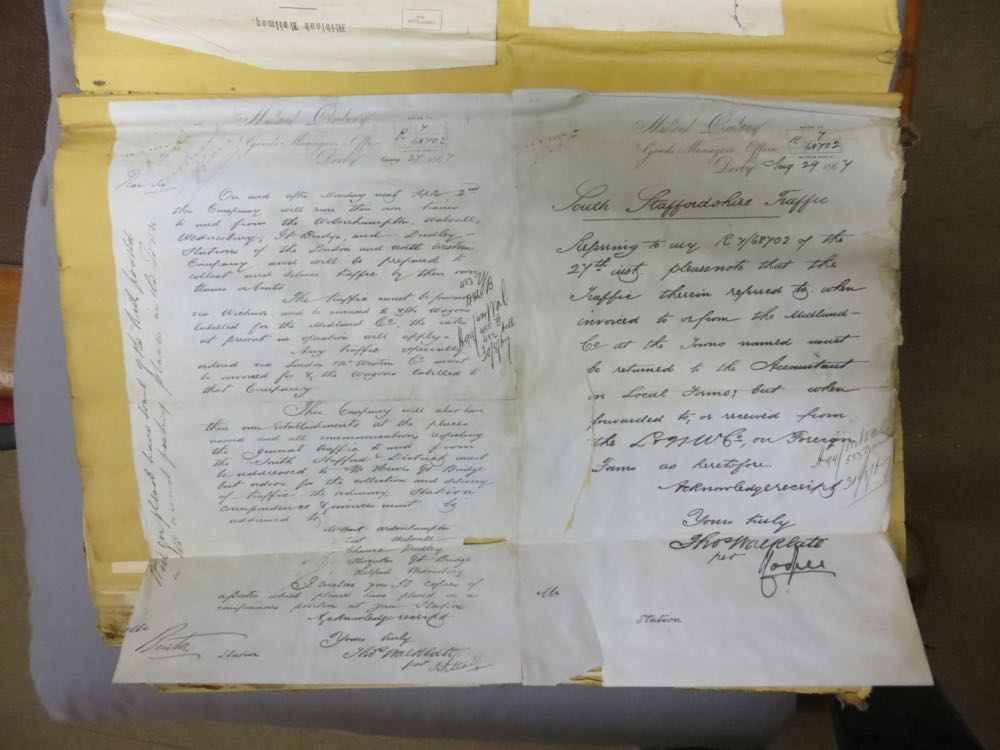 Midland Railway.
Midland Railway
Goods Managers Office
Derby Aug 27 1867
R 7
68702
Dear Sir
On and after Monday next Septr 2nd
this Company will run their own trains
to and from the Wolverhampton, Walsall,
Wednesbury, Gt Bridge, and Dudley
Stations of the London and North Western
Company and will be prepared to
collect and deliver traffic by their own
teams or boats
The traffic must be
via and be invoiced to & the Wagons
labelled for the Midland Co, the rates
at present in operation will apply -
Any traffic specially
ordered via London & Nr Western Co must
be invoiced for & the Wagons labelled to
that Company
This Company will also have
their own establishments at the places
named and all communications respecting
the general traffic to and from
the South Stafford District must
be addressed to Mr Gt Bridge
but orders for the collection and delivery
of traffic the ordinary Station
correspondence & invoices must be
addressed to
Wolverhampton
Walsall
Dudley
Gt Bridge
Wednesbury
I enclose you 50 copies of
a poster which please have placed in a
conspicuous position at your Station
Acknowledge receipt
Yours truly
Thos Walklate
per
Mr
Station
have some of the
posting places in the Town.
Midland Railway
Goods Managers Office
Derby Aug 29 1867
R 7
68702
South Staffordshire Traffic
Referring to my R 7/68702 of the
27th inst. please note that the
Traffic therein referred to when
invoiced to or from the Midland
Co at the Towns named must
be returned to the Accountant
on Local Forms; but when
forwarded to, or received from
the L & N W Co, on Foreign
Forms as heretofore.
Acknowledge receipt
Yours truly
Thos Walklate
per
Mr
Station